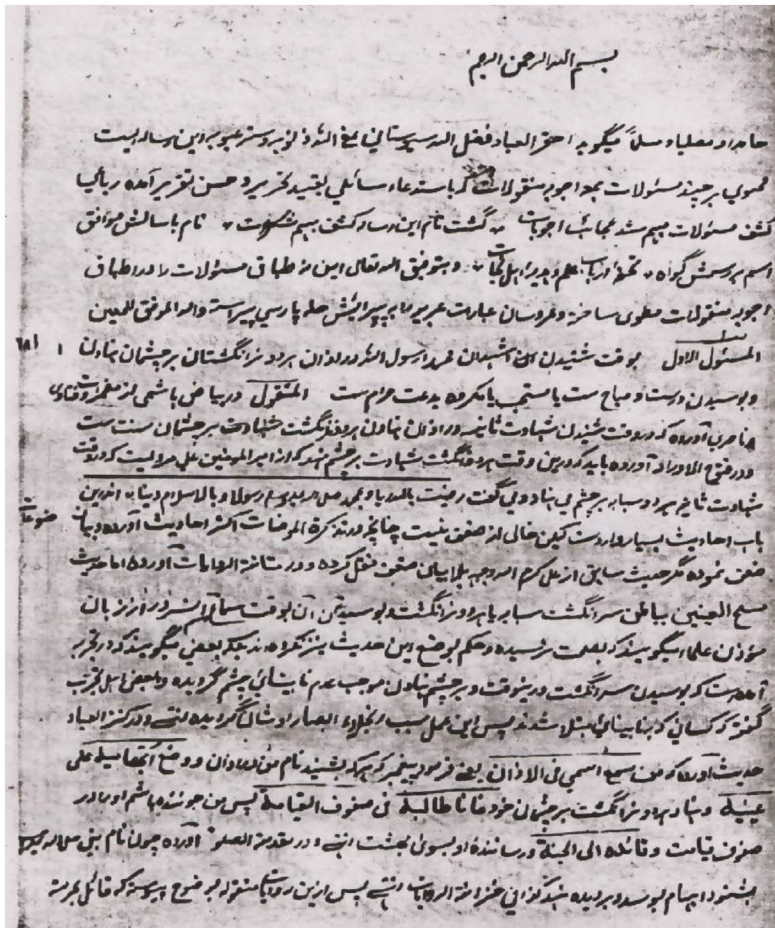 بسم الله الرحمن الرحيم
حامدا و مصلیا و مسلما میگوید احقر العباد فضل الله سیوستانی عفی الله ذنوبه و ستر عیوبه این رساله ایست
محتوی بر چند مسئولات بمع اجوبه منقولات که باستدعاء سائلی بقید تحریر و حسن تقریر آمده رباعی
کشف مسئولات مبهم شد عجائب اجوبات گشت نام این رساله کشف مبهم نام با سالش موافق
اسم بر رسمش گواه تحفه ارباب علم و هدیه اهل و بتوفیق الله تعالی این اطباق مسئولات را در اطباق
اجوبه منقولات مطوی ساخته و عروسان عبارت عربیه را به پیرایش حله پارسی پیراسته والله الموفق المعین
المسئول الاول بوقت شنیدن اشهد ان محمدا رسول الله در اذان هر دو نر انگشتان بر چشمان نهادن
و بوسیدن درست و مباح ست یا مستحب یا مکروه بدعت حرام ست المنقول در بیاض هاشمی از مضمرات و فتاوی
آورده که در وقت شنیدن شهادت ثانیه در اذان نهادن هر دو نر انگشت شهادت بر چشمان سنت ست
و در فتوح الاوراد آورده باید که درین وقت هر دو انگشت شهادت بر چشم نهد که از امیر المؤمنین علی مرویست که در وقت
شهادت ثانیه هر دو سبابه بر چشم می نهاد و می گفت رضیت بالله ربا و بمحمد صلی الله علیه وسلم رسولا و بالاسلام دینا اندرین
باب احادیث بسیار وارد ست لیکن خالی از ضعف نیست چنانچه در تذکرة الموضوعات اکثر احادیث آورده و بیان
ضعف نموده مگر حدیث سابق از علی کرم الله وجهه بلا بیان ضعف نقل کرده و در متانة الروایات آورده اما حدیث
مسح العینین بباطن سر انگشت سبابه یا هر دو نر انگشت و بوسیدن آن بوقت سماع از زبان
مؤذن علما میگویند که بصحت نرسیده و حکم بوضع این حدیث نیز نکرده اند بلکه بعضی میگویند که در تجربه
آمده ست که بوسیدن سر انگشت درینوقت و بر چشم نهادن موجب عدم نابینائی چشم گردیده و بعضی اهل تجربه
گفته که کسانی که بنابینائی مبتلا شدند پس این عمل سبب انجلاء ابصار اوشان گردیده انتهی و در کنز العباد
حدیث آورده که من سمع اسمی فی الاذان یعنی فرمود پیغمبر که هر که بشنید نام من در اذان و وضع ابهامیه علی
عینیه و نهاد هر دو نر انگشت بر چشمان خود فانا طالبه فی صفوف القیامة پس من جوینده باشم او را در
صفوف قیامت و قائده الی الجنة و رساننده او بسوی بهشت انتهی و در مقدمة الصلوة آورده چون نام نبی صلی الله علیه
بشنود ابهام بوسد و بر دیده نهد کذا فی خزانة الروایات انتهی پس ازین روایات منقوله بوضوح پیوسته که قائل بحرمة